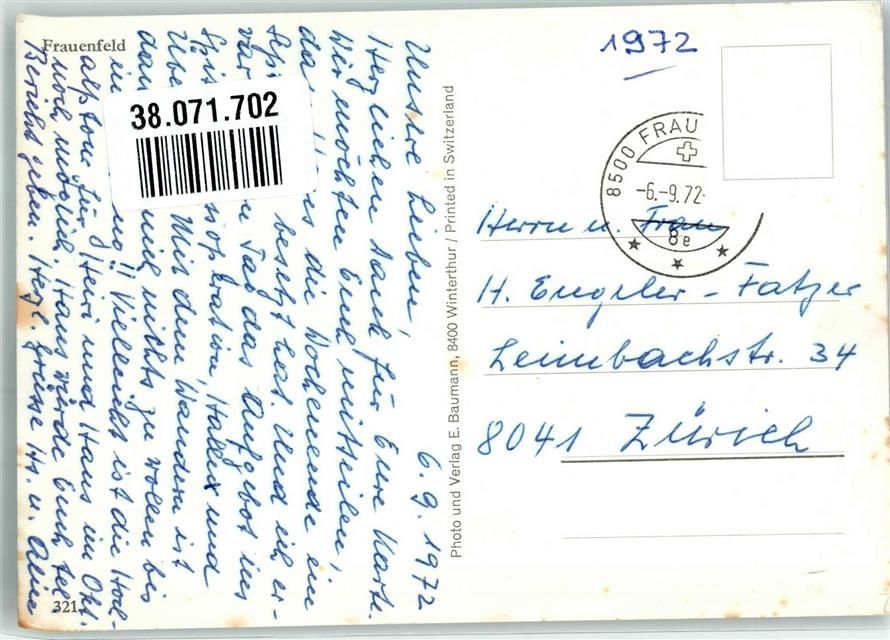 Frauenfeld
38.071.702
6.9.1972
Unsere Lieben,
Herzlichen Dank für Eure Karte.
Wir möchten Euch mitteilen,
die Wochenende ein
besetzt hat. Und ich er-
Tag das Aufgebot ins
Hallux und
Mit dem Wandern ist
nichts zu wollen bis
Vielleicht ist die Hoch-
alptour für Heiri und Hans im Okt.
noch möglich. Hans würde Euch tel.
Bericht geben. Herzl. Grüsse Hs. u. Aline
321
Photo und Verlag E. Baumann, 8400 Winterthur / Printed in Switzerland
1972
8500 FRAU
-6.-9.72-
8e
Herrn u. Frau
H. Engeler-Fatzer
Leimbachstr. 34
8041 Zürich